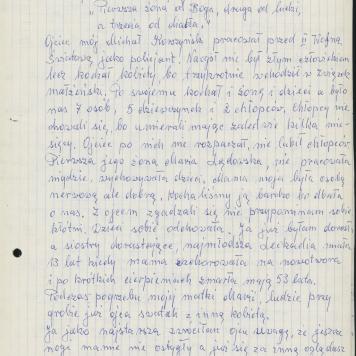 "Pierwsza żona od Boga, druga od ludzi,
a trzecia od diabła."
Ojciec mój Michał Korczyński pracował przed II Wojną
Światową jako policjant. Nałogi nie był złym człowiekiem
lecz kochał kobiety bo trzykrotnie wchodził w związek
małżeński. Po swojemu kochał i żonę i dzieci a było
nas 7 osób, 5 dziewczynek i 2 chłopców, chłopcy nie
chowali się, bo umierali mając zaledwie kilka mie-
sięcy. Ojciec po nich nie rozpaczał, nie lubił chłopców.
Pierwsza jego żona Maria, nie pracowała
nigdzie, wychowywała dzieci, mama moja była osobą
nerwową ale dobrą. Kochaliśmy ją bardzo bo dbała
o nas. Z ojcem zgadzali się nie przypominam sobie
kłótni. Dzieci sobie odchowała. Ja już byłam dorosła
a siostry dorastające, najmłodsza Leokadia miała
13 lat kiedy mama zachorowała na nowotwora
i po krótkich cierpieniach zmarła mając 53 lata.
Podczas pogrzebu mojej matki Marii, ludzie przy
grobie już ojca swatali z inną kobietą.
Ja jako najstarsza zwróciłam ojcu uwagę, że jeszcze
moja mamie nie ostygła a już się za inną oglądasz